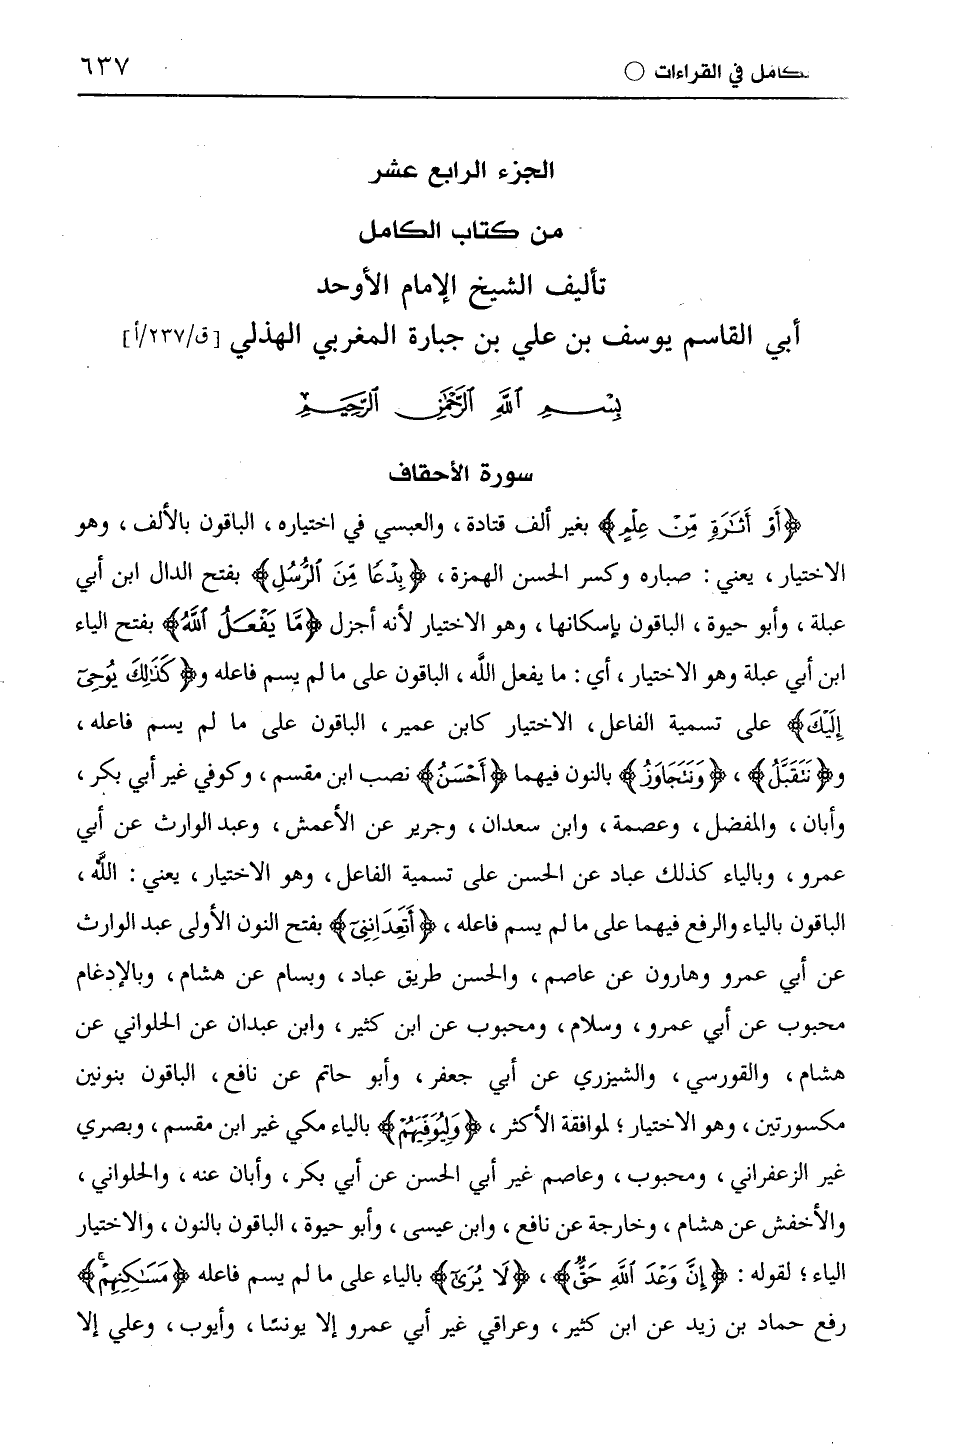 الكامل في القراءات ○ ٦٣٧
الجزء الرابع عشر
من كتاب الكامل
تأليف الشيخ الإمام الأوحد
أبي القاسم يوسف بن علي بن جبارة المغربي الهذلي [ق/٢٣٧/أ]
بِسْمِ اللَّهِ الرَّحْمَٰنِ الرَّحِيمِ
سورة الأحقاف
﴿أَوْ أَثَٰرَةٍ مِّنْ عِلْمٍ﴾ بغير ألف قتادة، والعبسي في اختياره، الباقون بالألف، وهو
الاختيار، يعني: صباره وكسر الحسن الهمزة، ﴿بِدْعًا مِّنَ ٱلرُّسُلِ﴾ بفتح الدال ابن أبي
عبلة، وأبو حيوة، الباقون بإسكانها، وهو الاختيار لأنه أجزل ﴿مَّا يَفْعَلُ ٱللَّهُ﴾ بفتح الياء
ابن أبي عبلة وهو الاختيار، أي: ما يفعل اللَّه، الباقون على ما لم يسم فاعله و﴿كَذَٰلِكَ يُوحِىٓ
إِلَيْكَ﴾ على تسمية الفاعل، الاختيار كابن عمير، الباقون على ما لم يسم فاعله،
و﴿نَتَقَبَّلُ﴾، ﴿وَنَتَجَاوَزُ﴾ بالنون فيهما ﴿أَحْسَنُ﴾ نصب ابن مقسم، وكوفي غير أبي بكر،
وأبان، والمفضل، وعصمة، وابن سعدان، وجرير عن الأعمش، وعبد الوارث عن أبي
عمرو، وبالياء كذلك عباد عن الحسن على تسمية الفاعل، وهو الاختيار، يعني: اللَّه،
الباقون بالياء والرفع فيهما على ما لم يسم فاعله، ﴿أَتَعِدَانِنِىٓ﴾ بفتح النون الأولى عبد الوارث
عن أبي عمرو وهارون عن عاصم، والحسن طريق عباد، وبسام عن هشام، وبالإدغام
محبوب عن أبي عمرو، وسلام، ومحبوب عن ابن كثير، وابن عبدان عن الحلواني عن
هشام، والقورسي، والشيزري عن أبي جعفر، وأبو حاتم عن نافع، الباقون بنونين
مكسورتين، وهو الاختيار؛ لموافقة الأكثر، ﴿وَلِيُوَفِّيَهُمْ﴾ بالياء مكي غير ابن مقسم، وبصري
غير الزعفراني، ومحبوب، وعاصم غير أبي الحسن عن أبي بكر، وأبان عنه، والحلواني،
والأخفش عن هشام، وخارجة عن نافع، وابن عيسى، وأبو حيوة، الباقون بالنون، والاختيار
الياء؛ لقوله: ﴿إِنَّ وَعْدَ ٱللَّهِ حَقٌّ﴾، ﴿لَا يُرَىٰٓ﴾ بالياء على ما لم يسم فاعله ﴿مَسَٰكِنِهِمْ﴾
رفع حماد بن زيد عن ابن كثير، وعراقي غير أبي عمرو إلا يونسًا، وأيوب، وعلي إلا